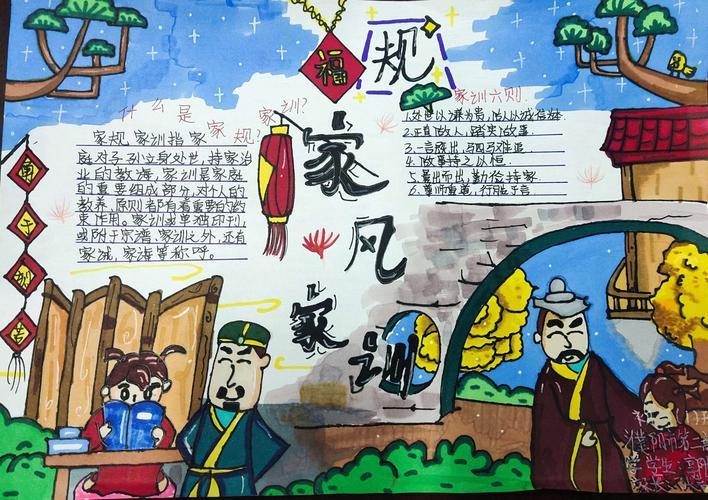 福
规
家风家训
什么是家规?家训?
家规、家训指家
庭对子孙立身处世、持家治
业的教诲,家训是家庭
的重要组成部分,对个人的
教养、原则都有着重要的约
束作用。家训或单独印刊,
或附于宗谱。家训之外,还有
家诫、家诲等称呼。
家训六则.
1.处世以谦为贵,做人以诚信为
2.正直做人,踏实做事.
3.一言既出,驷马难追
4.做事持之以恒.
5.量出而出,勤俭持家
6.尊师重道,行胜于言.
濮阳市第二